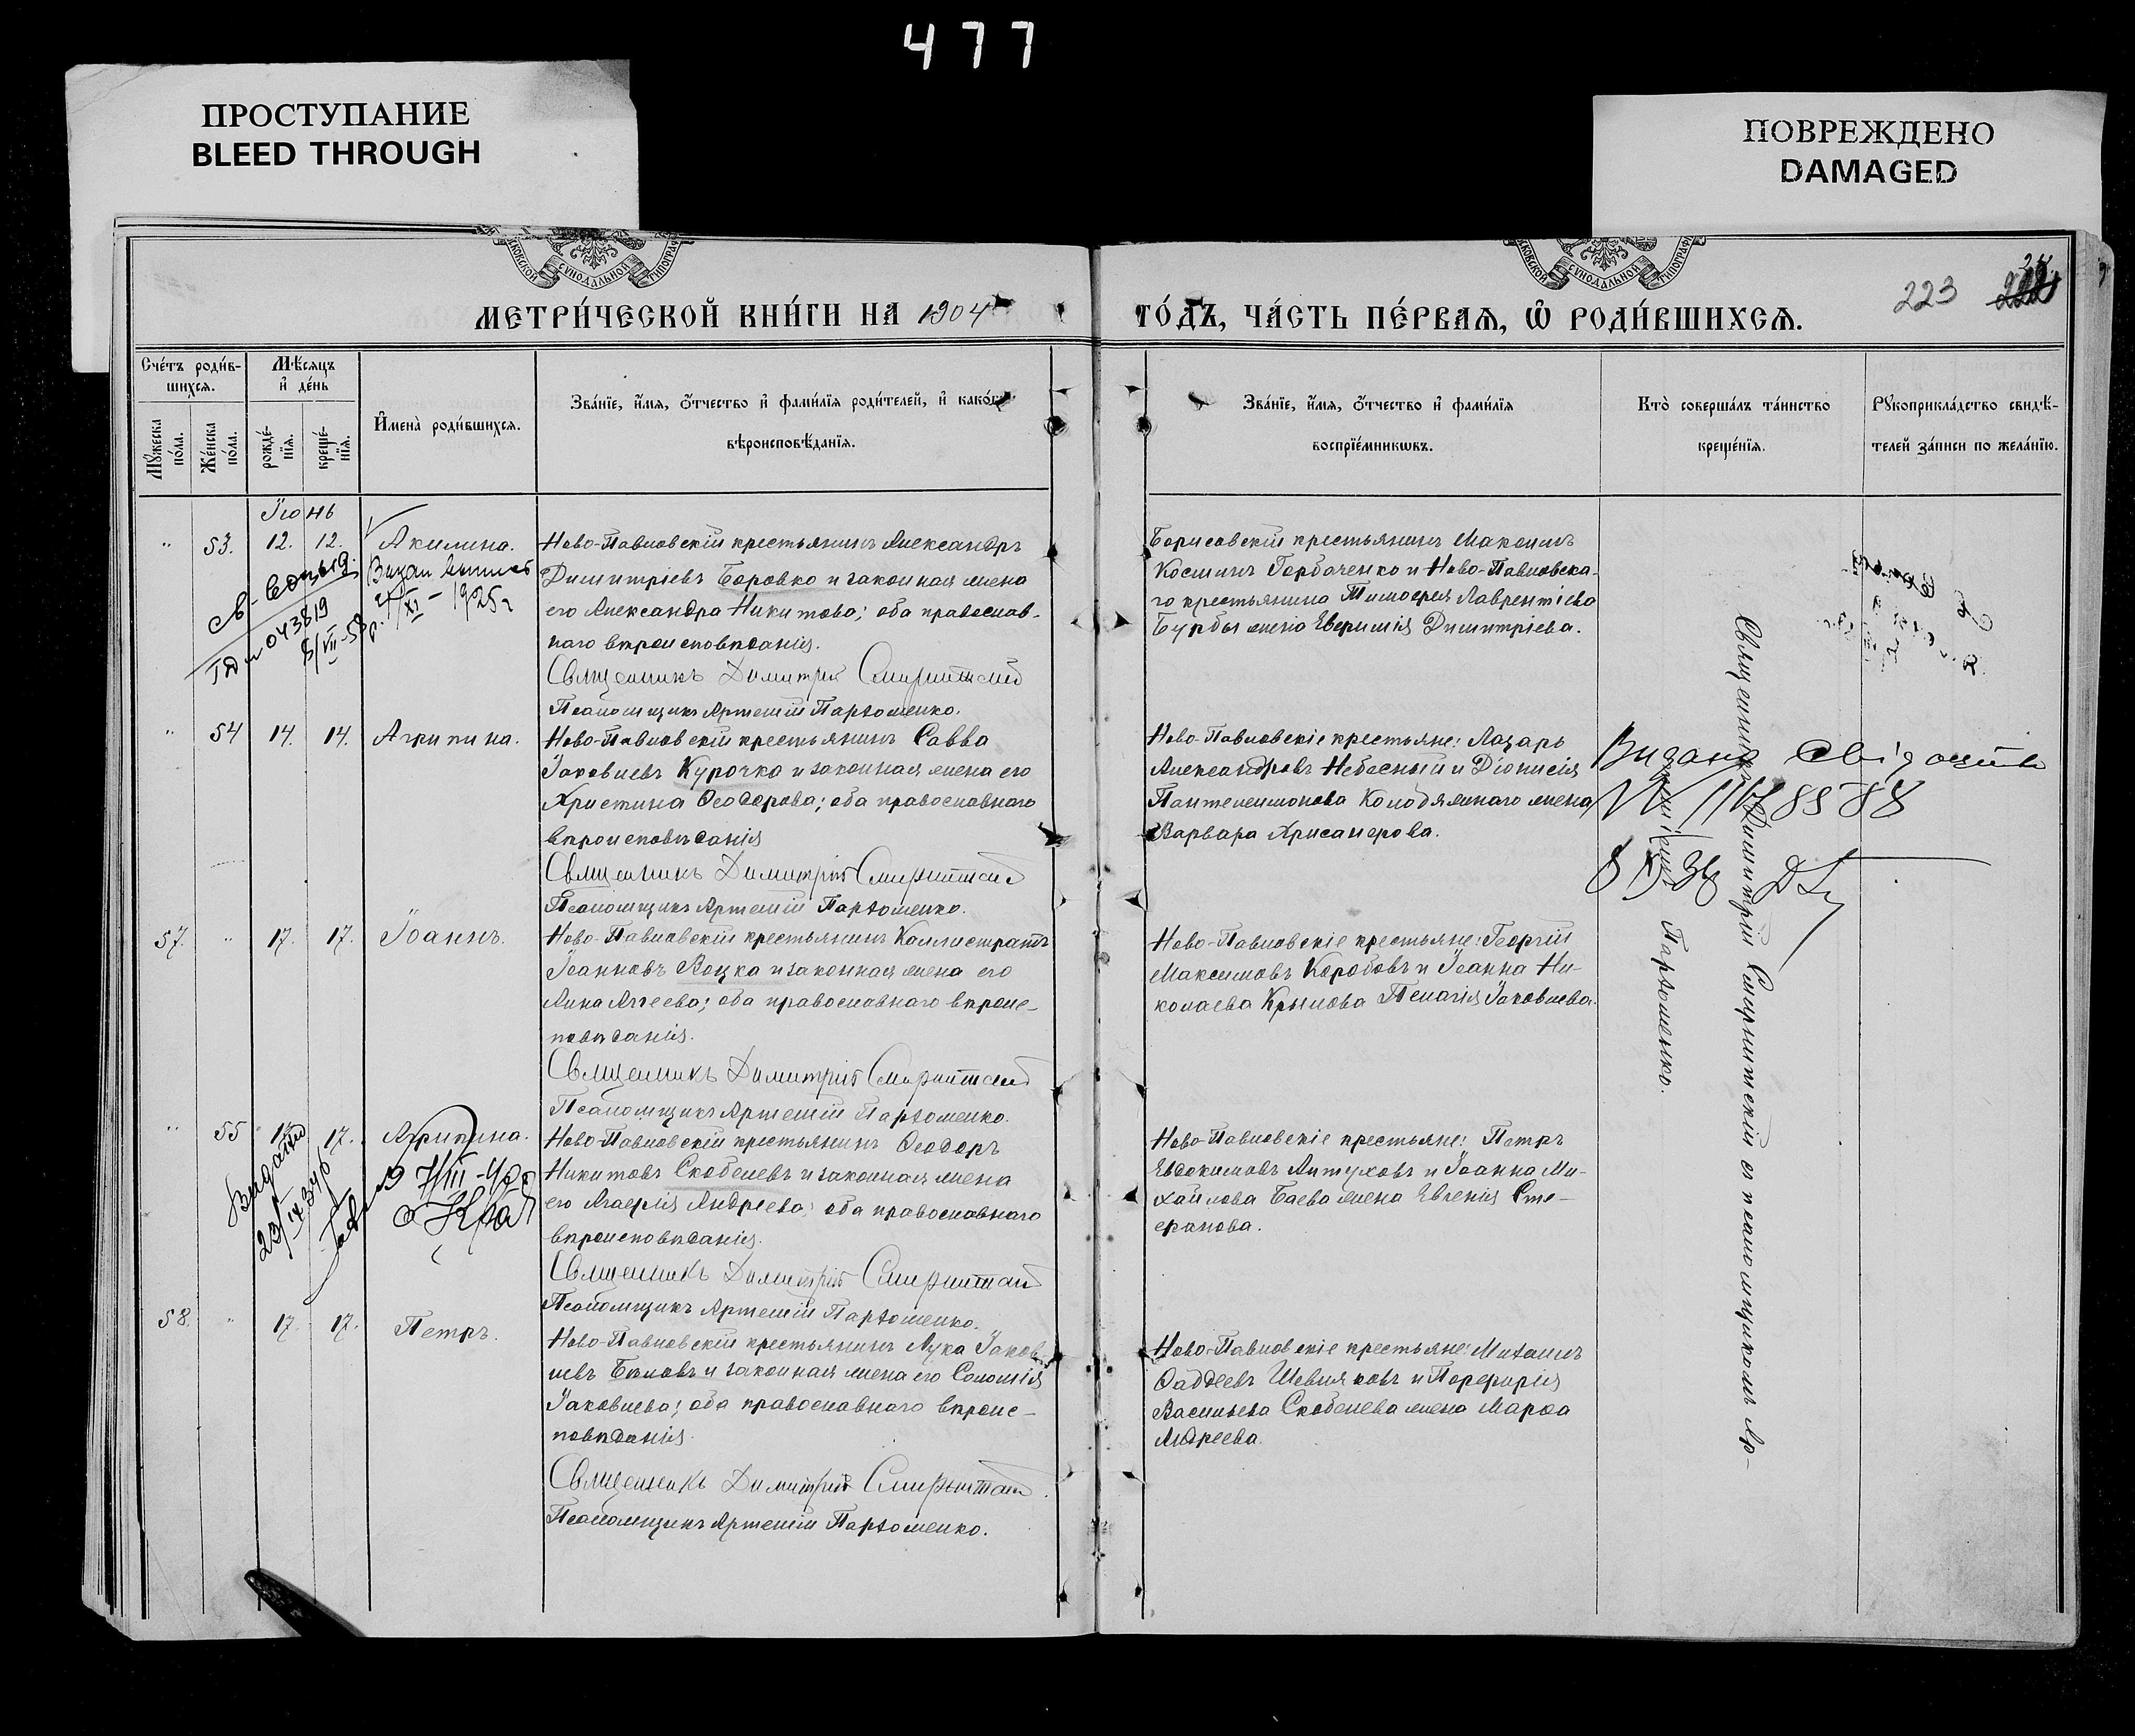 477
ПРОСТУПАНИЕ
BLEED THROUGH
ПОВРЕЖДЕНО
DAMAGED
МЕТРИ́ЧЕСКОЙ КНИ́ГИ НА 1904
ГО́ДЪ, ЧА́СТЬ ПЕ́РВАѦ, Ѡ҆ РОДИ́ВШИХСѦ.
223
Сче́тъ роди́в-
шихся.
Мѣ́сяцъ
и҆ де́нь
Мꙋ́жеска по́ла.
Же́нска по́ла.
рожде́-
нїя.
креще́-
нїя.
И҆мена̀ роди́вшихся.
Зва́нїе, и҆́мя, ѻ҆́тчество и҆ фами́лїя роди́телей, и҆ како́гѡ
вѣроисповѣ́данїя.
Зва́нїе, и҆́мя, ѻ҆́тчество и҆ фами́лїя
воспрїе́мникѡвъ.
Кто̀ соверша́лъ та́инство
креще́нїя.
Рꙋкоприкла́дство свидѣ́-
телей за́писи по жела́нїю.
Іюнь
" 53. 12. 12. Акилина.
Ново-Павловскій крестьянинъ Александръ
Димитріевъ Боровко и законная жена
его Александра Никитова; оба православ-
наго вѣроисповѣданія.
Священникъ Димитрій
Псаломщикъ Артемій Пархоменко.
Борисовскій крестьянинъ Максимъ
Косминъ Горбаченко и Ново-Павловска-
го крестьянина Тимоѳея Лаврентіева
Бурбы жена Евѳимія Димитріева.
043819
8/VII-58 р.
XI - 1925 г
" 54 14. 14. Агрипина.
Ново-Павловскій крестьянинъ Савва
Іаковлевъ Курочка и законная жена его
Христина Ѳеодорова; оба православнаго
вѣроисповѣданія
Священникъ Димитрій
Псаломщикъ Артемій Пархоменко.
Ново-Павловскіе крестьяне: Лазарь
Александровъ Небесный и Діонисія
Пантелеимонова Колодяжнаго жена
Варвара Хрисанѳова.
Видано
57. " 17. 17. Іоаннъ.
Ново-Павловскій крестьянинъ Каллистратъ
Іоанновъ Воцко и законная жена его
Анна Агѣева; оба православнаго вѣроис-
повѣданія.
Священникъ Димитрій
Псаломщикъ Артемій Пархоменко.
Ново-Павловскіе крестьяне: Георгій
Максимовъ Коробовъ и Іоанна Ни-
колаева Крылова Пелагія Іаковлева.
" 55 17. 17. Агрипина.
Ново-Павловскій крестьянинъ Ѳеодоръ
Никитовъ Скобелевъ и законная жена
его Агаѳія Андреева; оба православнаго
вѣроисповѣданія.
Священникъ Димитрій
Псаломщикъ Артемій Пархоменко.
Ново-Павловскіе крестьяне: Петръ
Евдокимовъ Антуховъ и Іоанна Ми-
хайлова Баева жена Евгенія Сте-
фанова.
Видано
58. " 17. 17. Петръ.
Ново-Павловскій крестьянинъ Лука Іаков-
левъ Бѣловъ и законная жена его Соломія
Іаковлева; оба православнаго вѣроис-
повѣданія.
Священникъ Димитрій
Псаломщикъ Артемій Пархоменко.
Ново-Павловскіе крестьяне: Михаилъ
Ѳаддеевъ Шевляковъ и Порфирія
Васильева Скобелева жена Марѳа
Андреева.
Священникъ Димитрій съ псаломщикомъ Ар-
теміемъ Пархоменко.